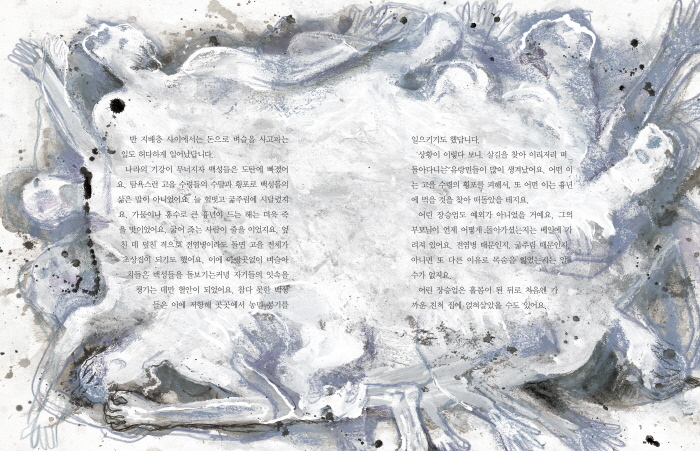 반 지배층 사이에서는 돈으로 벼슬을 사고파는
일도 허다하게 일어났답니다.
나라의 기강이 무너지자 백성들은 도탄에 빠졌어
요. 탐욕스런 고을 수령들의 수탈과 횡포로 백성들의
삶은 말이 아니었어요. 늘 헐벗고 굶주림에 시달렸지
요. 가뭄이나 홍수로 큰 흉년이 드는 해는 더욱 죽
을 맛이었어요. 굶어 죽는 사람이 줄을 이었지요. 엎
친 데 덮친 격으로 전염병이라도 돌면 고을 전체가
초상집이 되기도 했어요. 이에 아랑곳없이 벼슬아
치들은 백성들을 돌보기는커녕 자기들의 잇속을
챙기는 데만 혈안이 되었어요. 참다 못한 백성
들은 이에 저항해 곳곳에서 농민 봉기를
일으키기도 했답니다.
상황이 이렇다 보니, 살길을 찾아 이리저리 떠
돌아다니는 유랑민들이 많이 생겨났어요. 어떤 이
는 고을 수령의 횡포를 피해서, 또 어떤 이는 흉년
에 먹을 것을 찾아 떠돌았을 테지요.
어린 장승업도 예외가 아니었을 거예요. 그의
부모님이 언제 어떻게 돌아가셨는지는 베일에 가
려져 있어요. 전염병 때문인지, 굶주림 때문인지,
아니면 또 다른 이유로 목숨을 잃었는지는 알
수가 없지요.
어린 장승업은 홀몸이 된 뒤로 처음엔 가
까운 친척 집에 얹혀살았을 수도 있어요.